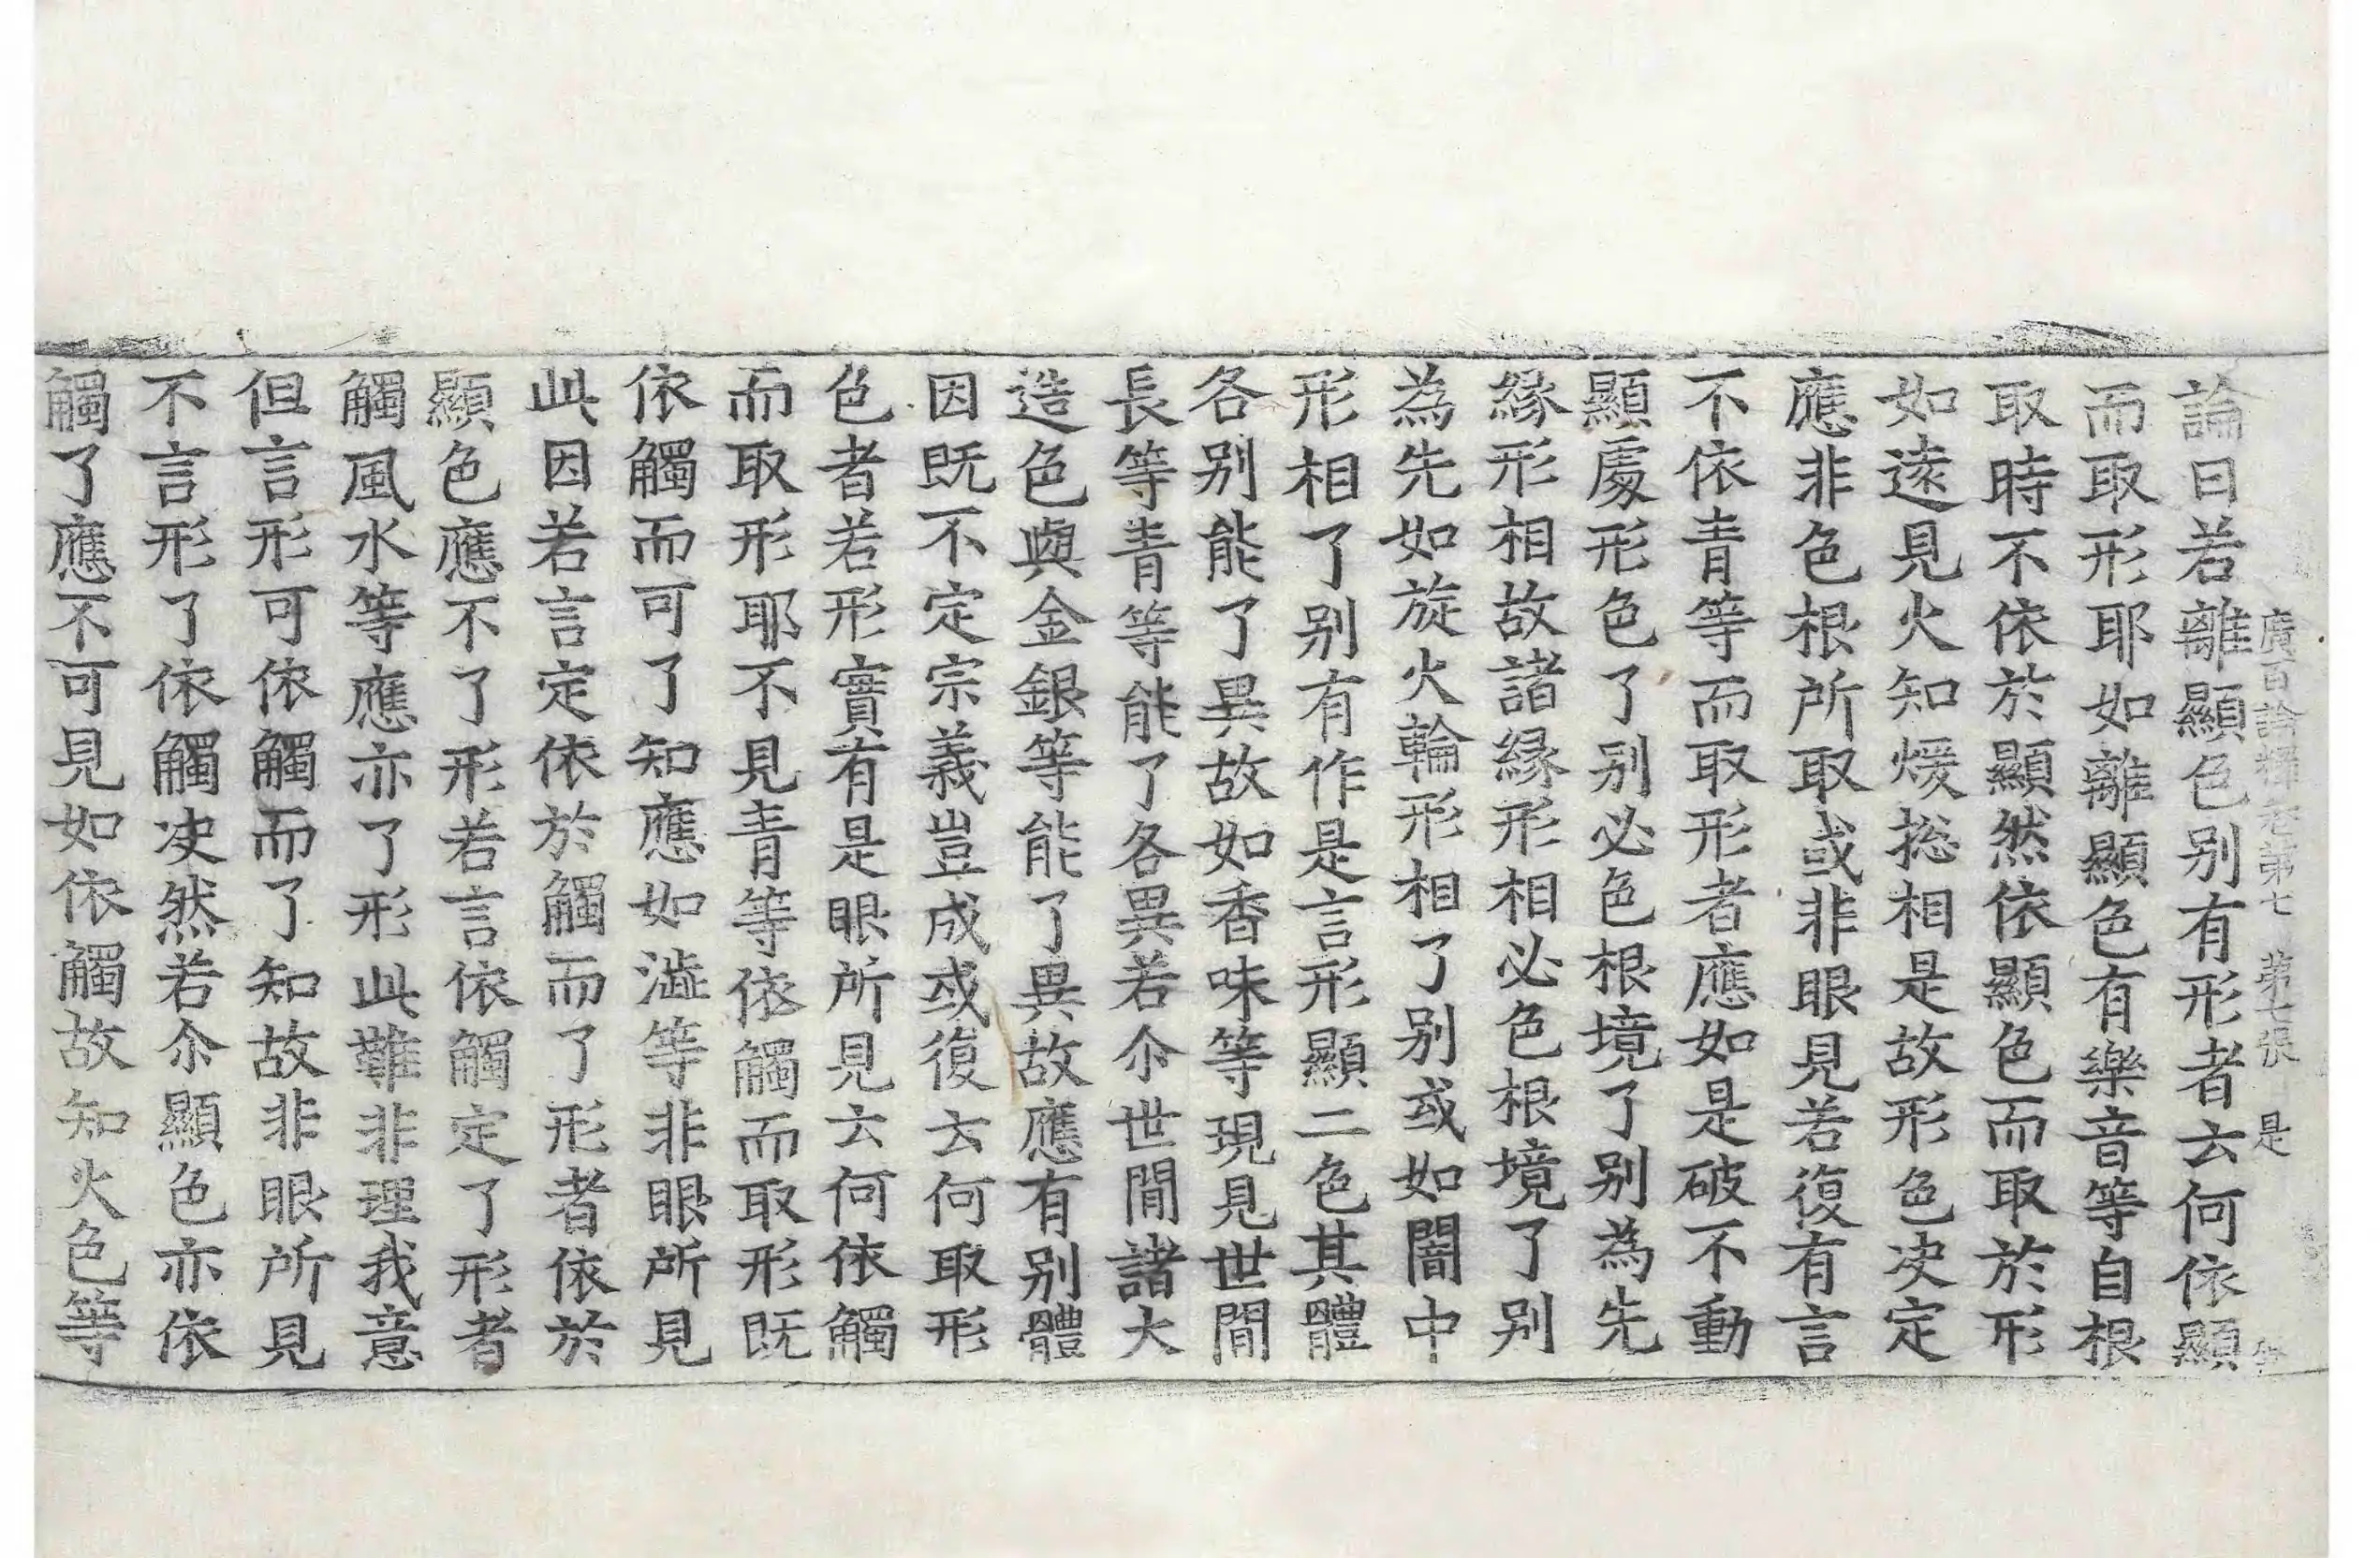 廣百論釋卷第七 第七張 是
論曰若離顯色别有形者云何依顯
而取形耶如離顯色有樂音等自根
取時不依於顯然依顯色而取於形
如遠見火知煖捴相是故形色决定
應非色根所取或非眼見若復有言
不依青等而取形者應如是破不動
顯處形色了别必色根境了别為先
緣形相故諸緣形相必色根境了别
為先如旋火輪形相了别或如闇中
形相了别有作是言形顯二色其體
各别能了異故如香味等現見世間
長等青等能了各異若尒世間諸大
造色與金銀等能了異故應有别體
因既不定宗義豈成或復云何取形
色者若形實有是眼所見云何依觸
而取形耶不見青等依觸而取形既
依觸而可了知應如澁等非眼所見
此因若言定依於觸而了形者依於
顯色應不了形若言依觸定了形者
觸風水等應亦了形此難非理我意
但言形可依觸而了知故非眼所見
不言形了依觸决然若尒顯色亦依
觸了應不可見如依觸故知火色等